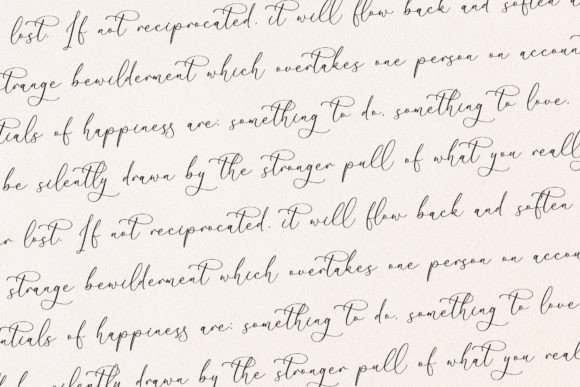 lost. If not reciprocated, it will flow back and soften
strange bewilderment which overtakes one person on accoun
tials of happiness are: something to do, something to love,
be silently drawn by the stronger pull of what you reall
r lost. If not reciprocated, it will flow back and soften
strange bewilderment which overtakes one person on accou
ntials of happiness are: something to do, something to love
silently drawn by the stronger pull of what you real